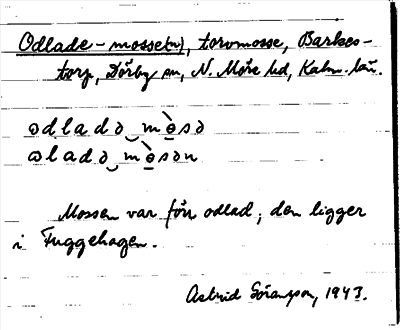 Odlade-mosse(n), torvmosse, Barkes-
torp, Dörby sn, N. Möre hd, Kalm. län.
ɷdladə‿mɵ̀sə
ɷladə‿mɵ̀sən
Mossen var förr odlad; den ligger
i Fuggehagen.
Astrid Göransson, 1943.